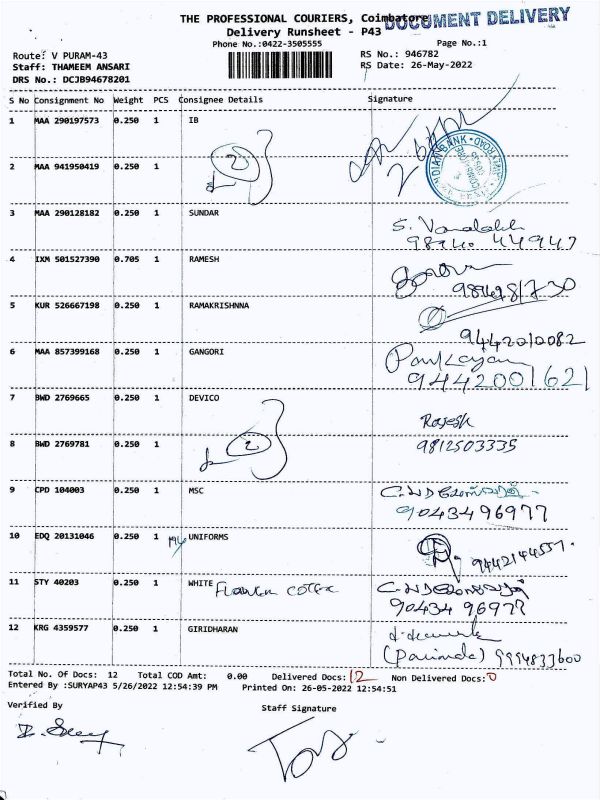 THE PROFESSIONAL COURIERS, Coimbatore
DOCUMENT DELIVERY
Delivery Runsheet - P43
Phone No.:0422-3505555 Page No.:1
Route: V PURAM-43 RS No.: 946782
Staff: THAMEEM ANSARI RS Date: 26-May-2022
DRS No.: DCJB94678201
S No Consignment No Weight PCS Consignee Details Signature
1 MAA 290197573 0.250 1 IB
2 MAA 941950419 0.250 1
2
3 MAA 290128182 0.250 1 SUNDAR
98940 44947
4 IXM 501527390 0.705 1 RAMESH
5 KUR 526667198 0.250 1 RAMAKRISHNNA
9442010082
6 MAA 857399168 0.250 1 GANGORI
9442001621
7 BWD 2769665 0.250 1 DEVICO
Rajesh
8 BWD 2769781 0.250 1
2
9812503335
9 CPD 104003 0.250 1 MSC
9043496977
10 EDQ 20131046 0.250 1 UNIFORMS
9442144557
11 STY 40203 0.250 1 WHITE
90434 96977
12 KRG 4359577 0.250 1 GIRIDHARAN
9994833600
Total No. Of Docs: 12 Total COD Amt: 0.00 Delivered Docs: 12 Non Delivered Docs: 0
Entered By :SURYAP43 5/26/2022 12:54:39 PM Printed On: 26-05-2022 12:54:51
Verified By Staff Signature